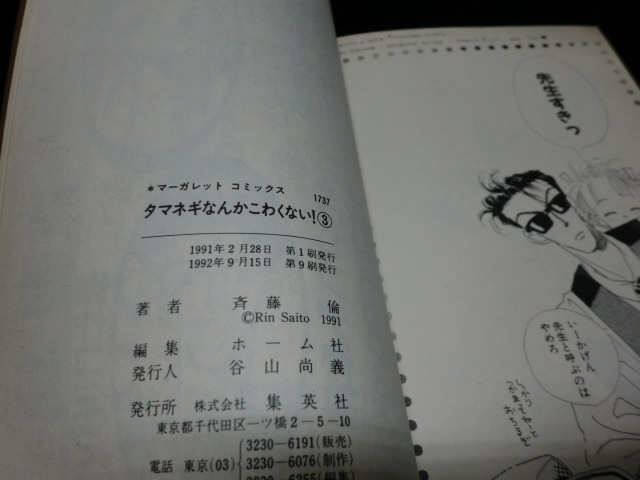 *マーガレット コミックス 1737
タマネギなんかこわくない!③
1991年2月28日 第1刷発行
1992年9月15日 第9刷発行
著者 斉藤倫
©Rin Saito 1991
編集 ホーム社
発行人 谷山尚義
発行所 株式会社 集英社
東京都千代田区一ツ橋2-5-10
3230-6191(販売)
電話 東京(03) 3230-6076(制作)
3230-6255(編集)
先生すきっ
いーかげん
先生と呼ぶのは
やめろ